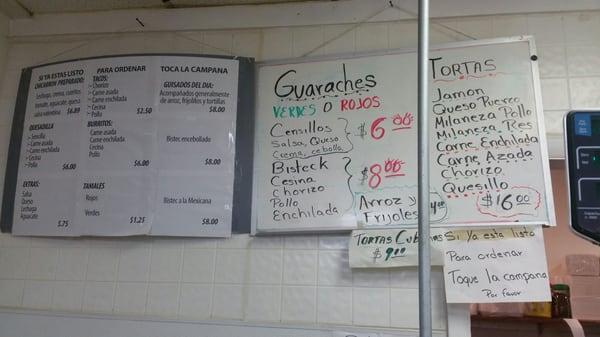 SI YA ESTAS LISTO
CHICHARRON PREPARADO:
Lechuga, crema, cueritos,
tomate, aguacate, queso
salsa valentina $6.89
QUESADILLA
Sencilla
Carne asada
Carne enchilada
Cecina
Pollo
$6.00
EXTRAS:
Salsa
Queso
Lechuga
Aguacate
$.75
PARA ORDENAR
TACOS:
Chorizo
Carne asada
Carne enchilada
Cecina
Pollo $2.50
BURRITOS:
Carne asada
Carne enchilada
Cecina
Pollo
$6.00
TAMALES
Rojos
Verdes $1.25
TOCA LA CAMPANA
GUISADOS DEL DIA:
Acompañados generalmente
de arroz, frijolitos y tortillas
$8.00
Bistec encebollado
$8.00
Bistec a la Mexicana
$8.00
Guaraches
VERDES O ROJOS
Censillos
Salsa, Queso
Crema, cebolla
$6.00
Bisteck
Cesina
Chorizo
Pollo
Enchilada
$8.00
Arroz y
Frijoles 4.00
TORTAS
Jamon
Queso Puerro
Milaneza Pollo
Milaneza Res
Carne Enchilada
Carne Azada
Chorizo
Quesillo
$16.00
TORTAS
$9.00
Si Ya esta listo
Para ordenar
Toque la campana
Por favor